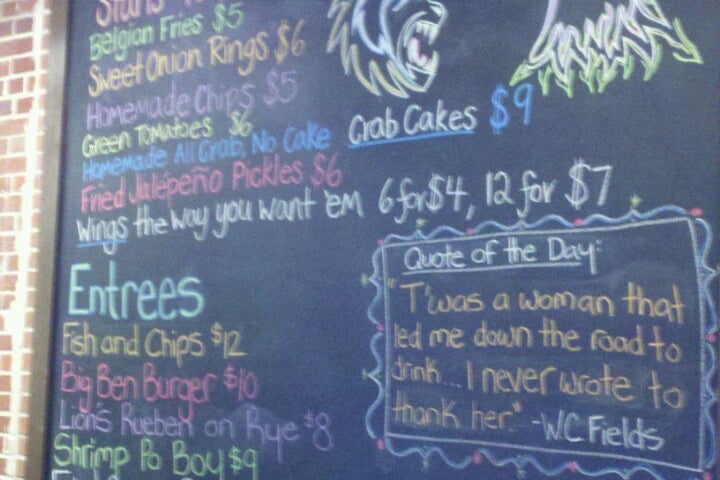 Belgian Fries $5
Sweet Onion Rings $6
Homemade Chips $5
Green Tomatoes $6
Homemade All Crab, No Cake Crab Cakes $9
Fried Jalepeño Pickles $6
Wings the way you want 'em 6 for $4, 12 for $7
Entrees
Fish and Chips $12
Big Ben Burger $10
Lion's Rueben on Rye $8
Shrimp Po Boy $9
Quote of the Day:
"T'was a woman that
led me down the road to
drink... I never wrote to
thank her." -W.C Fields